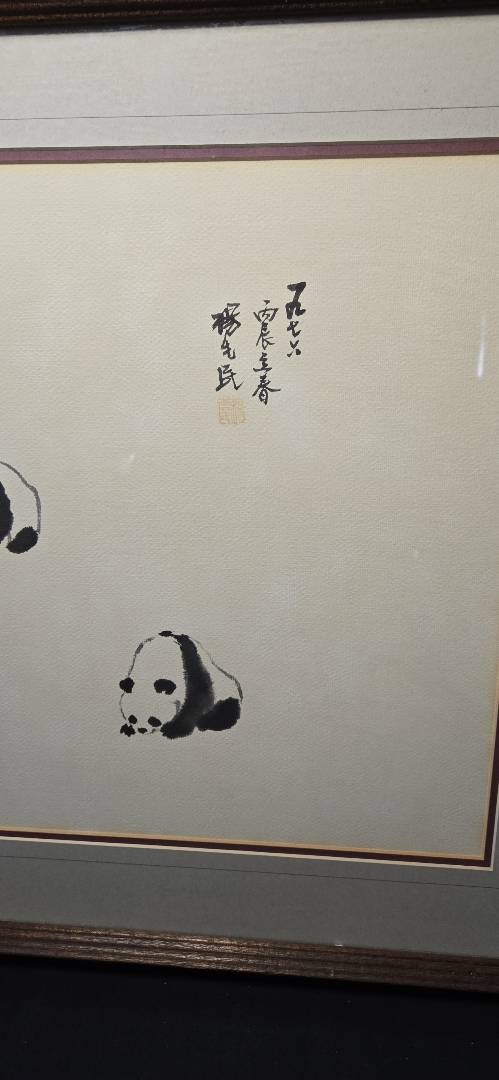 一九七六
丙辰立春
楊先民